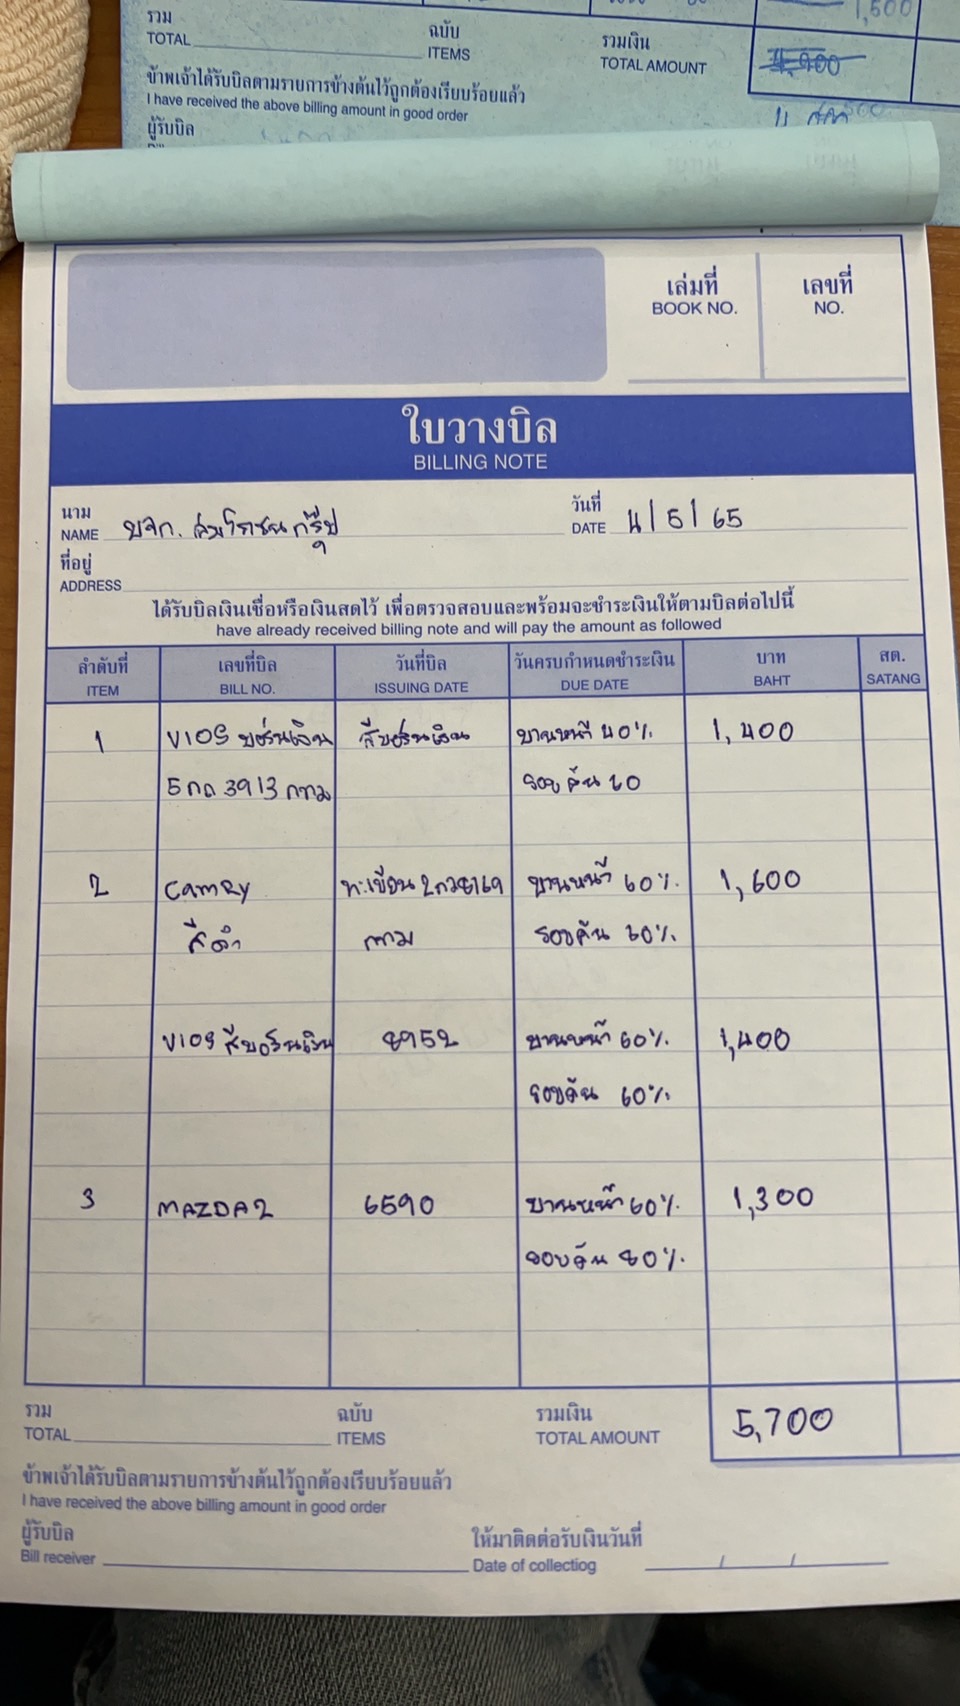 1,500
รวม
TOTAL
ฉบับ
ITEMS
รวมเงิน
TOTAL AMOUNT
ข้าพเจ้าได้รับบิลตามรายการข้างต้นไว้ถูกต้องเรียบร้อยแล้ว
I have received the above billing amount in good order
ผู้รับบิล
เล่มที่
BOOK NO.
เลขที่
NO.
ใบวางบิล
BILLING NOTE
นาม
NAME บจก.
วันที่
DATE 4/5/65
ที่อยู่
ADDRESS
ได้รับบิลเงินเชื่อหรือเงินสดไว้ เพื่อตรวจสอบและพร้อมจะชำระเงินให้ตามบิลต่อไปนี้
have already received billing note and will pay the amount as followed
ลำดับที่ เลขที่บิล วันที่บิล วันครบกำหนดชำระเงิน บาท สต.
ITEM BILL NO. ISSUING DATE DUE DATE BAHT SATANG
1 VIOS บอร์นเงิน สีบอร์นเงิน บานหน้า 40% 1,400
5กถ 3913 กทม รอบคัน 60
2 CAMRY ทะเบียน 2กว8169 บานหน้า 60% 1,600
สีดำ กทม รอบคัน 60%
VIOS สีบอร์นเงิน 8952 บานหน้า 60% 1,400
รอบคัน 60%
3 MAZDA2 6590 บานหน้า 60% 1,300
รอบคัน 80%
รวม
TOTAL
ฉบับ
ITEMS
รวมเงิน
TOTAL AMOUNT
5,700
ข้าพเจ้าได้รับบิลตามรายการข้างต้นไว้ถูกต้องเรียบร้อยแล้ว
I have received the above billing amount in good order
ผู้รับบิล
Bill receiver
ให้มาติดต่อรับเงินวันที่
Date of collectiog / /